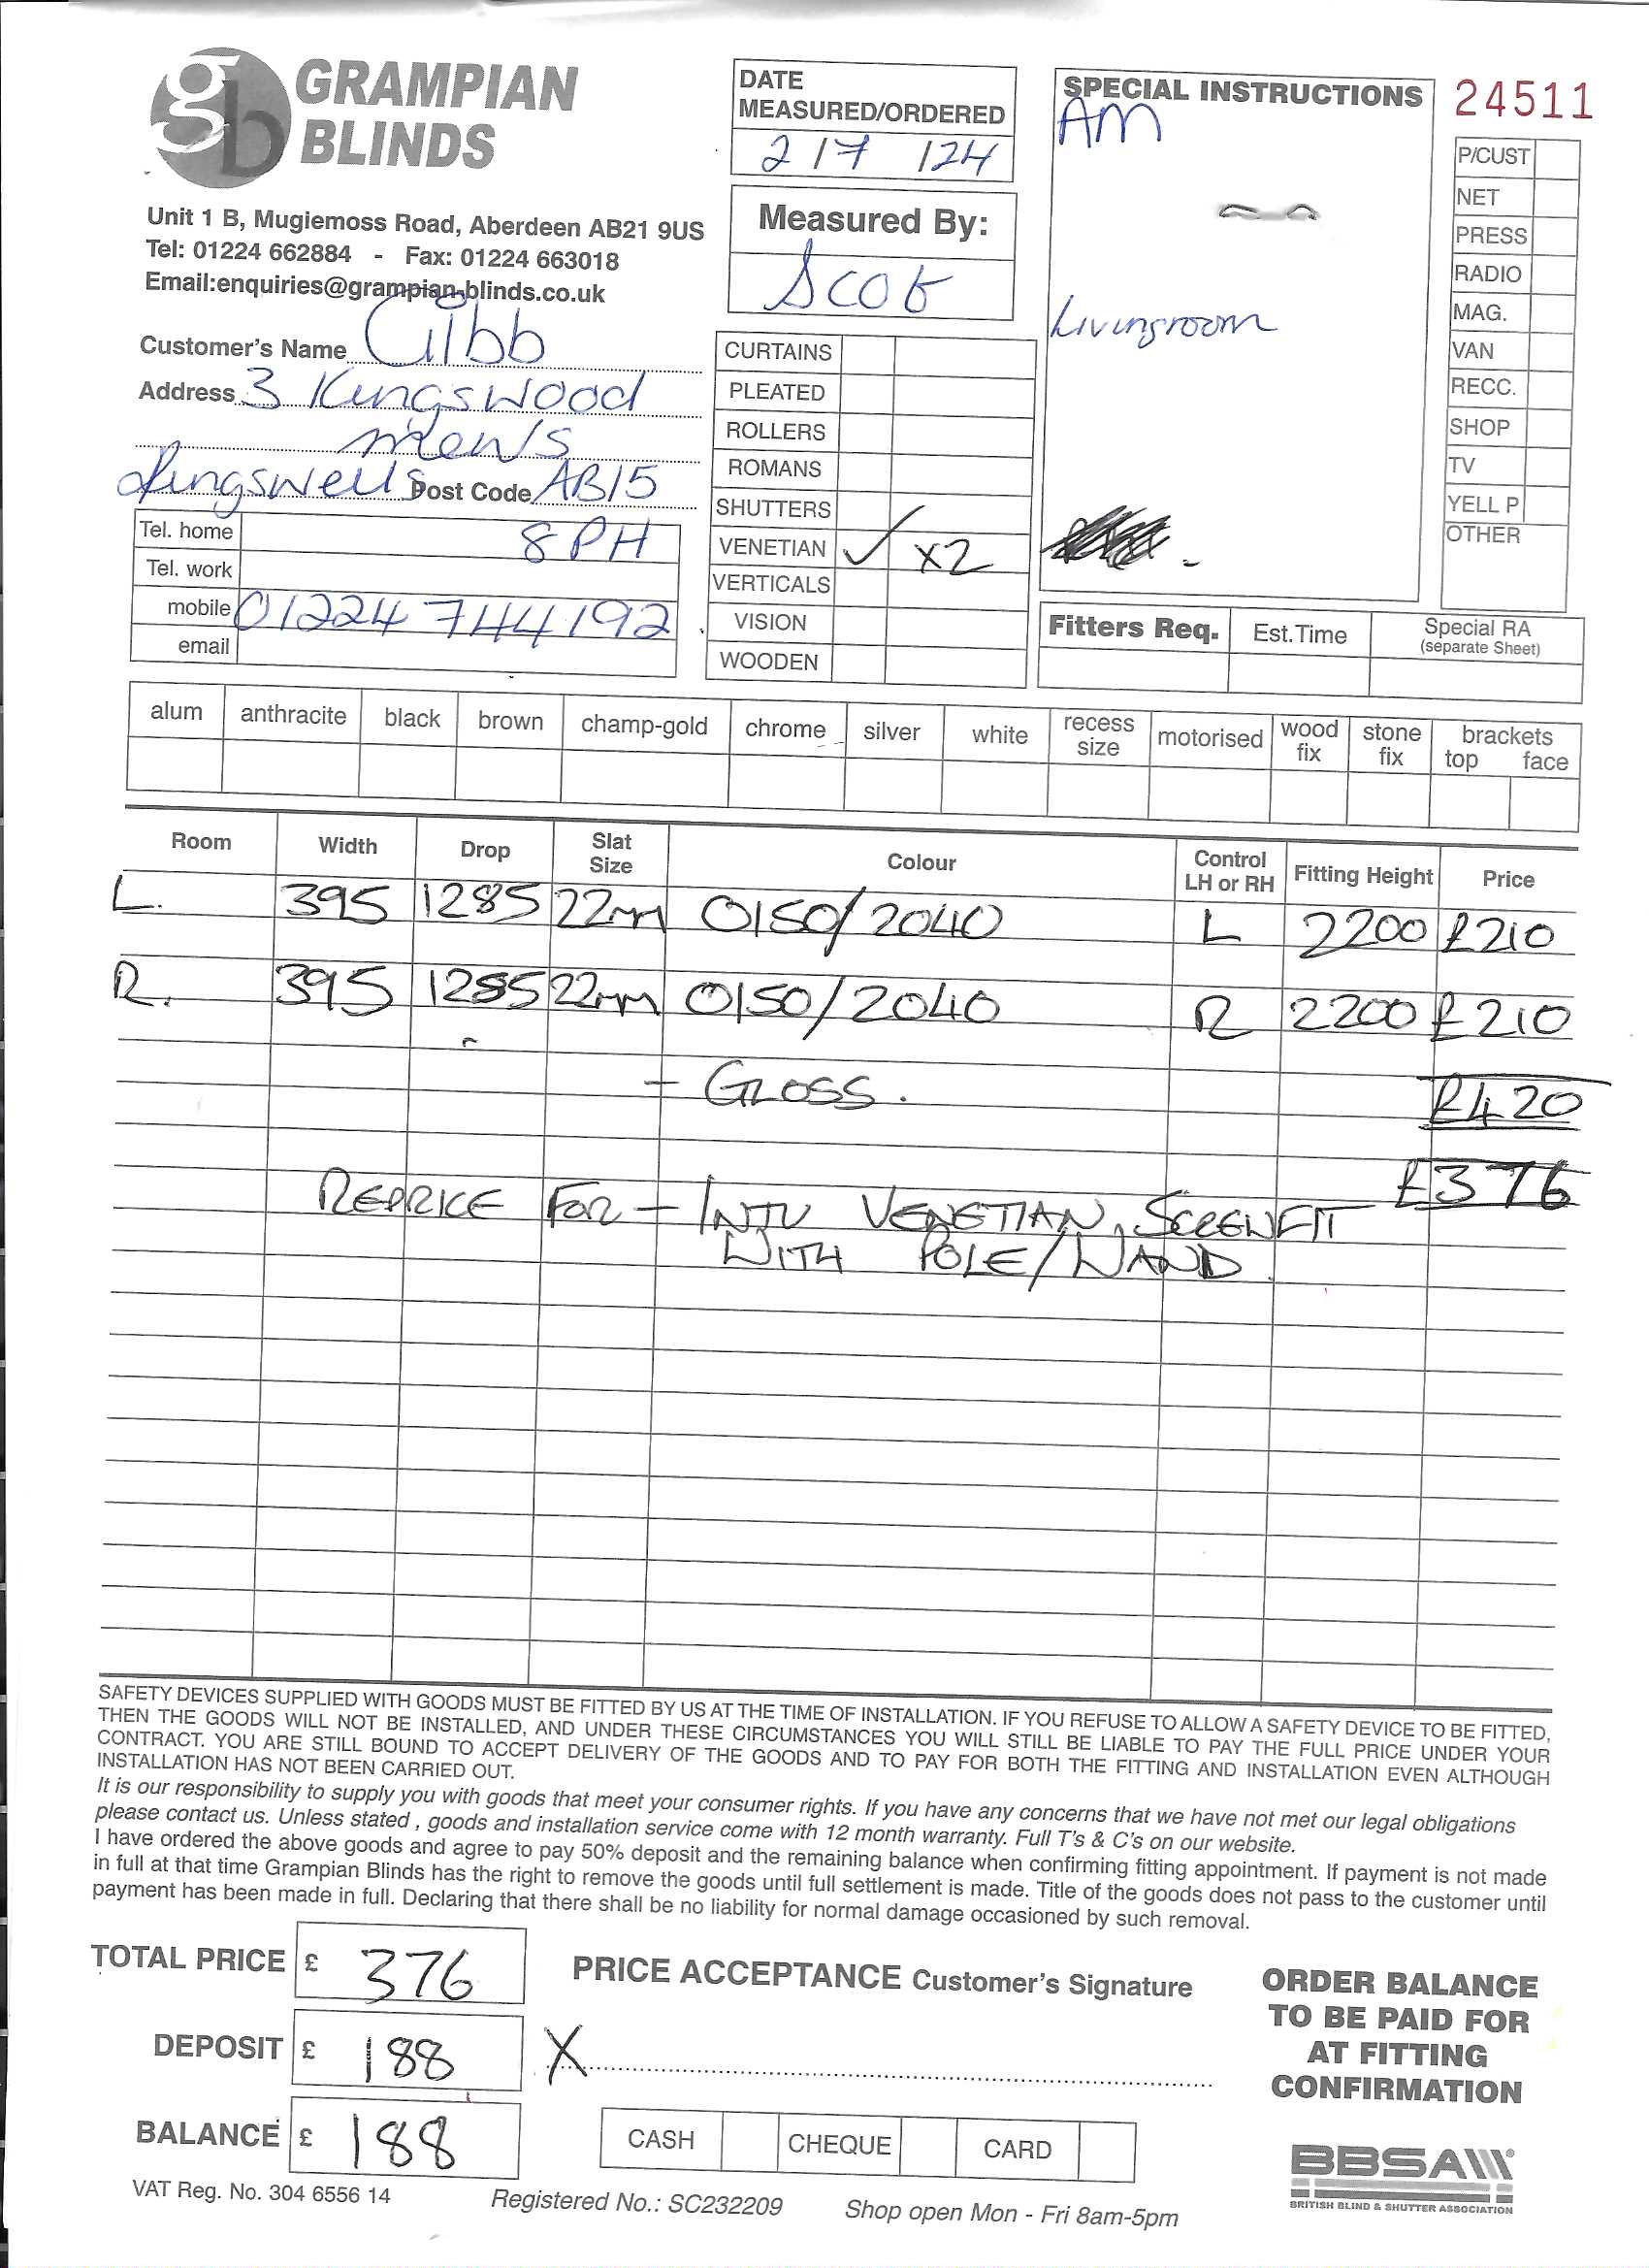 gb GRAMPIAN BLINDS
Unit 1 B, Mugiemoss Road, Aberdeen AB21 9US
Tel: 01224 662884 - Fax: 01224 663018
Email:enquiries@grampian-blinds.co.uk
Customer's Name Gibb
Address 3 Kingswood
mews
Kingswells Post Code AB15
Tel. home 8PH
Tel. work
mobile 01224 744192
email
DATE
MEASURED/ORDERED
2/7/24
Measured By:
Scot
CURTAINS
PLEATED
ROLLERS
ROMANS
SHUTTERS
VENETIAN ✓ x2
VERTICALS
VISION
WOODEN
SPECIAL INSTRUCTIONS
AM
Livingroom
24511
P/CUST
NET
PRESS
RADIO
MAG.
VAN
RECC.
SHOP
TV
YELL P
OTHER
Fitters Req. Est.Time Special RA
(separate Sheet)
alum anthracite black brown champ-gold chrome silver white recess size motorised wood fix stone fix brackets top face
Room Width Drop Slat Size Colour Control LH or RH Fitting Height Price
L. 395 1285 22mm 0150/2040 L 2200 £210
R. 395 1285 22mm 0150/2040 R 2200 £210
- GLOSS. £420
£376
REPRICE FOR - INTU VENETIAN, SCREWFIT
WITH POLE/WAND
SAFETY DEVICES SUPPLIED WITH GOODS MUST BE FITTED BY US AT THE TIME OF INSTALLATION. IF YOU REFUSE TO ALLOW A SAFETY DEVICE TO BE FITTED,
THEN THE GOODS WILL NOT BE INSTALLED, AND UNDER THESE CIRCUMSTANCES YOU WILL STILL BE LIABLE TO PAY THE FULL PRICE UNDER YOUR
CONTRACT. YOU ARE STILL BOUND TO ACCEPT DELIVERY OF THE GOODS AND TO PAY FOR BOTH THE FITTING AND INSTALLATION EVEN ALTHOUGH
INSTALLATION HAS NOT BEEN CARRIED OUT.
It is our responsibility to supply you with goods that meet your consumer rights. If you have any concerns that we have not met our legal obligations
please contact us. Unless stated , goods and installation service come with 12 month warranty. Full T's & C's on our website.
I have ordered the above goods and agree to pay 50% deposit and the remaining balance when confirming fitting appointment. If payment is not made
in full at that time Grampian Blinds has the right to remove the goods until full settlement is made. Title of the goods does not pass to the customer until
payment has been made in full. Declaring that there shall be no liability for normal damage occasioned by such removal.
TOTAL PRICE £ 376
DEPOSIT £ 188
BALANCE £ 188
PRICE ACCEPTANCE Customer's Signature
X
CASH CHEQUE CARD
ORDER BALANCE
TO BE PAID FOR
AT FITTING
CONFIRMATION
BBSA
BRITISH BLIND & SHUTTER ASSOCIATION
VAT Reg. No. 304 6556 14 Registered No.: SC232209 Shop open Mon - Fri 8am-5pm